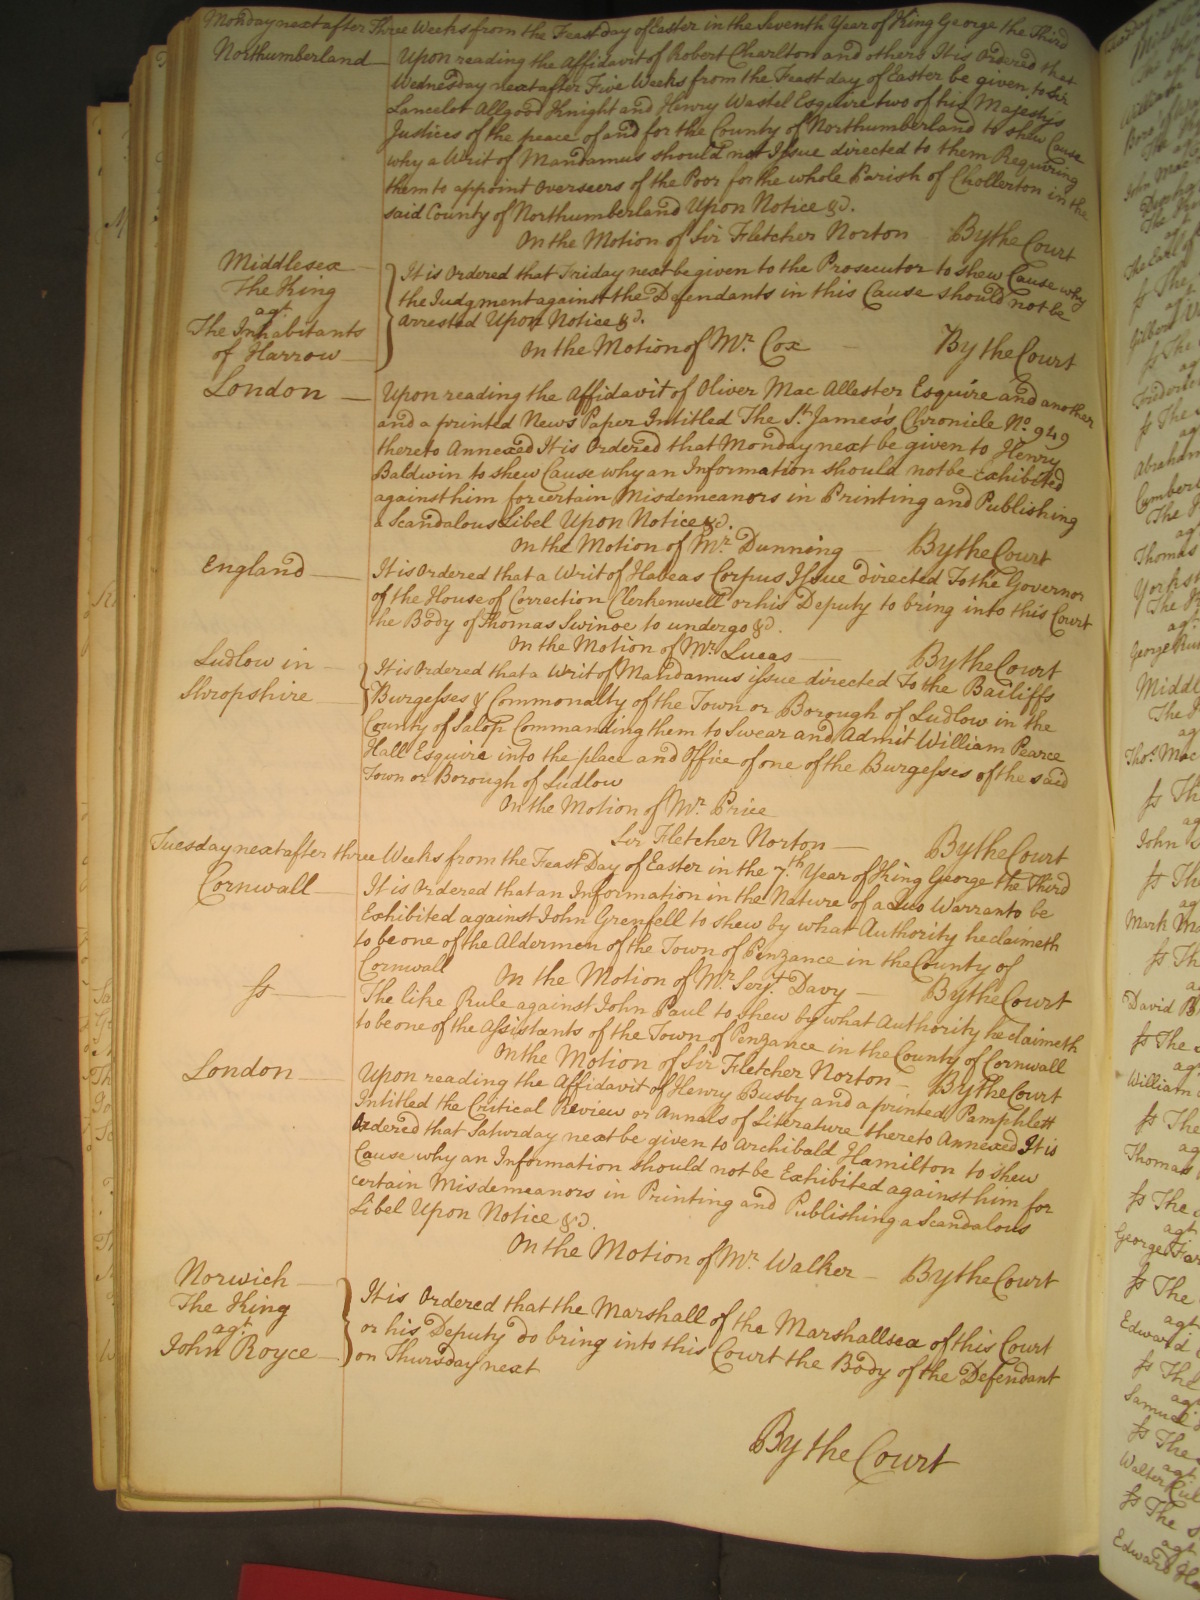 Monday next after Three Weeks from the Feast day of Easter in the Seventh Year of King George the Third
Northumberland Upon reading the Affidavit of Robert Charlton and others It is Ordered that
Wednesday next after Five Weeks from the Feast day of Easter be given to Sir
Lancelot Allgood Knight and Henry Wastel Esquire two of his Majestys
Justices of the peace of and for the County of Northumberland to shew Cause
why a Writ of Mandamus should not Issue directed to them Requiring
them to appoint Overseers of the Poor for the whole Parish of Chollerton in the
said County of Northumberland Upon Notice &c.
On the Motion of Sir Fletcher Norton By the Court
Middlesex
The King
agt
The Inhabitants
of Harrow
It is Ordered that Friday next be given to the Prosecutor to shew Cause why
the Judgment against the Defendants in this Cause should not be
arrested Upon Notice &c.
On the Motion of Mr. Cox By the Court
London Upon reading the Affidavit of Oliver Mac Allester Esquire and another
and a printed News Paper Intitled The St. James's Chronicle No. 949
thereto Annexed It is Ordered that Monday next be given to Henry
Baldwin to shew Cause why an Information should not be Exhibited
against him for certain Misdemeanors in Printing and Publishing
a Scandalous Libel Upon Notice &c.
On the Motion of Mr. Dunning By the Court
England It is Ordered that a Writ of Habeas Corpus Issue directed To the Governor
of the House of Correction Clerkenwell or his Deputy to bring into this Court
the Body of Thomas Swinoe to undergo &c.
On the Motion of Mr. Lucas By the Court
Ludlow in
Shropshire
It is Ordered that a Writ of Mandamus issue directed To the Bailiffs
Burgesses & Commonalty of the Town or Borough of Ludlow in the
County of Salop Commanding them to Swear and Admit William Pearce
Hall Esquire into the place and Office of one of the Burgesses of the said
Town or Borough of Ludlow
On the Motion of Mr. Price
Sir Fletcher Norton By the Court
Tuesday next after three Weeks from the Feast Day of Easter in the 7th. Year of King George the Third
Cornwall It is Ordered that an Information in the Nature of a Quo Warranto be
Exhibited against John Grenfell to shew by what Authority he claimeth
to be one of the Aldermen of the Town of Penzance in the County of
Cornwall On the Motion of Mr. Serjt. Davy By the Court
ss The like Rule against John Paul to shew by what Authority he claimeth
to be one of the Assistants of the Town of Penzance in the County of Cornwall
On the Motion of Sir Fletcher Norton By the Court
London Upon reading the Affidavit of Henry Busby and a printed Pamphlett
Intitled the Critical Review or Annals of Literature thereto Annexed It is
Ordered that Saturday next be given to Archibald Hamilton to shew
Cause why an Information should not be Exhibited against him for
certain Misdemeanors in Printing and Publishing a Scandalous
Libel Upon Notice &c.
On the Motion of Mr. Walker By the Court
Norwich
The King
agt
John Royce
It is Ordered that the Marshall of the Marshallsea of this Court
or his Deputy do bring into this Court the Body of the Defendant
on Thursday next
By the Court